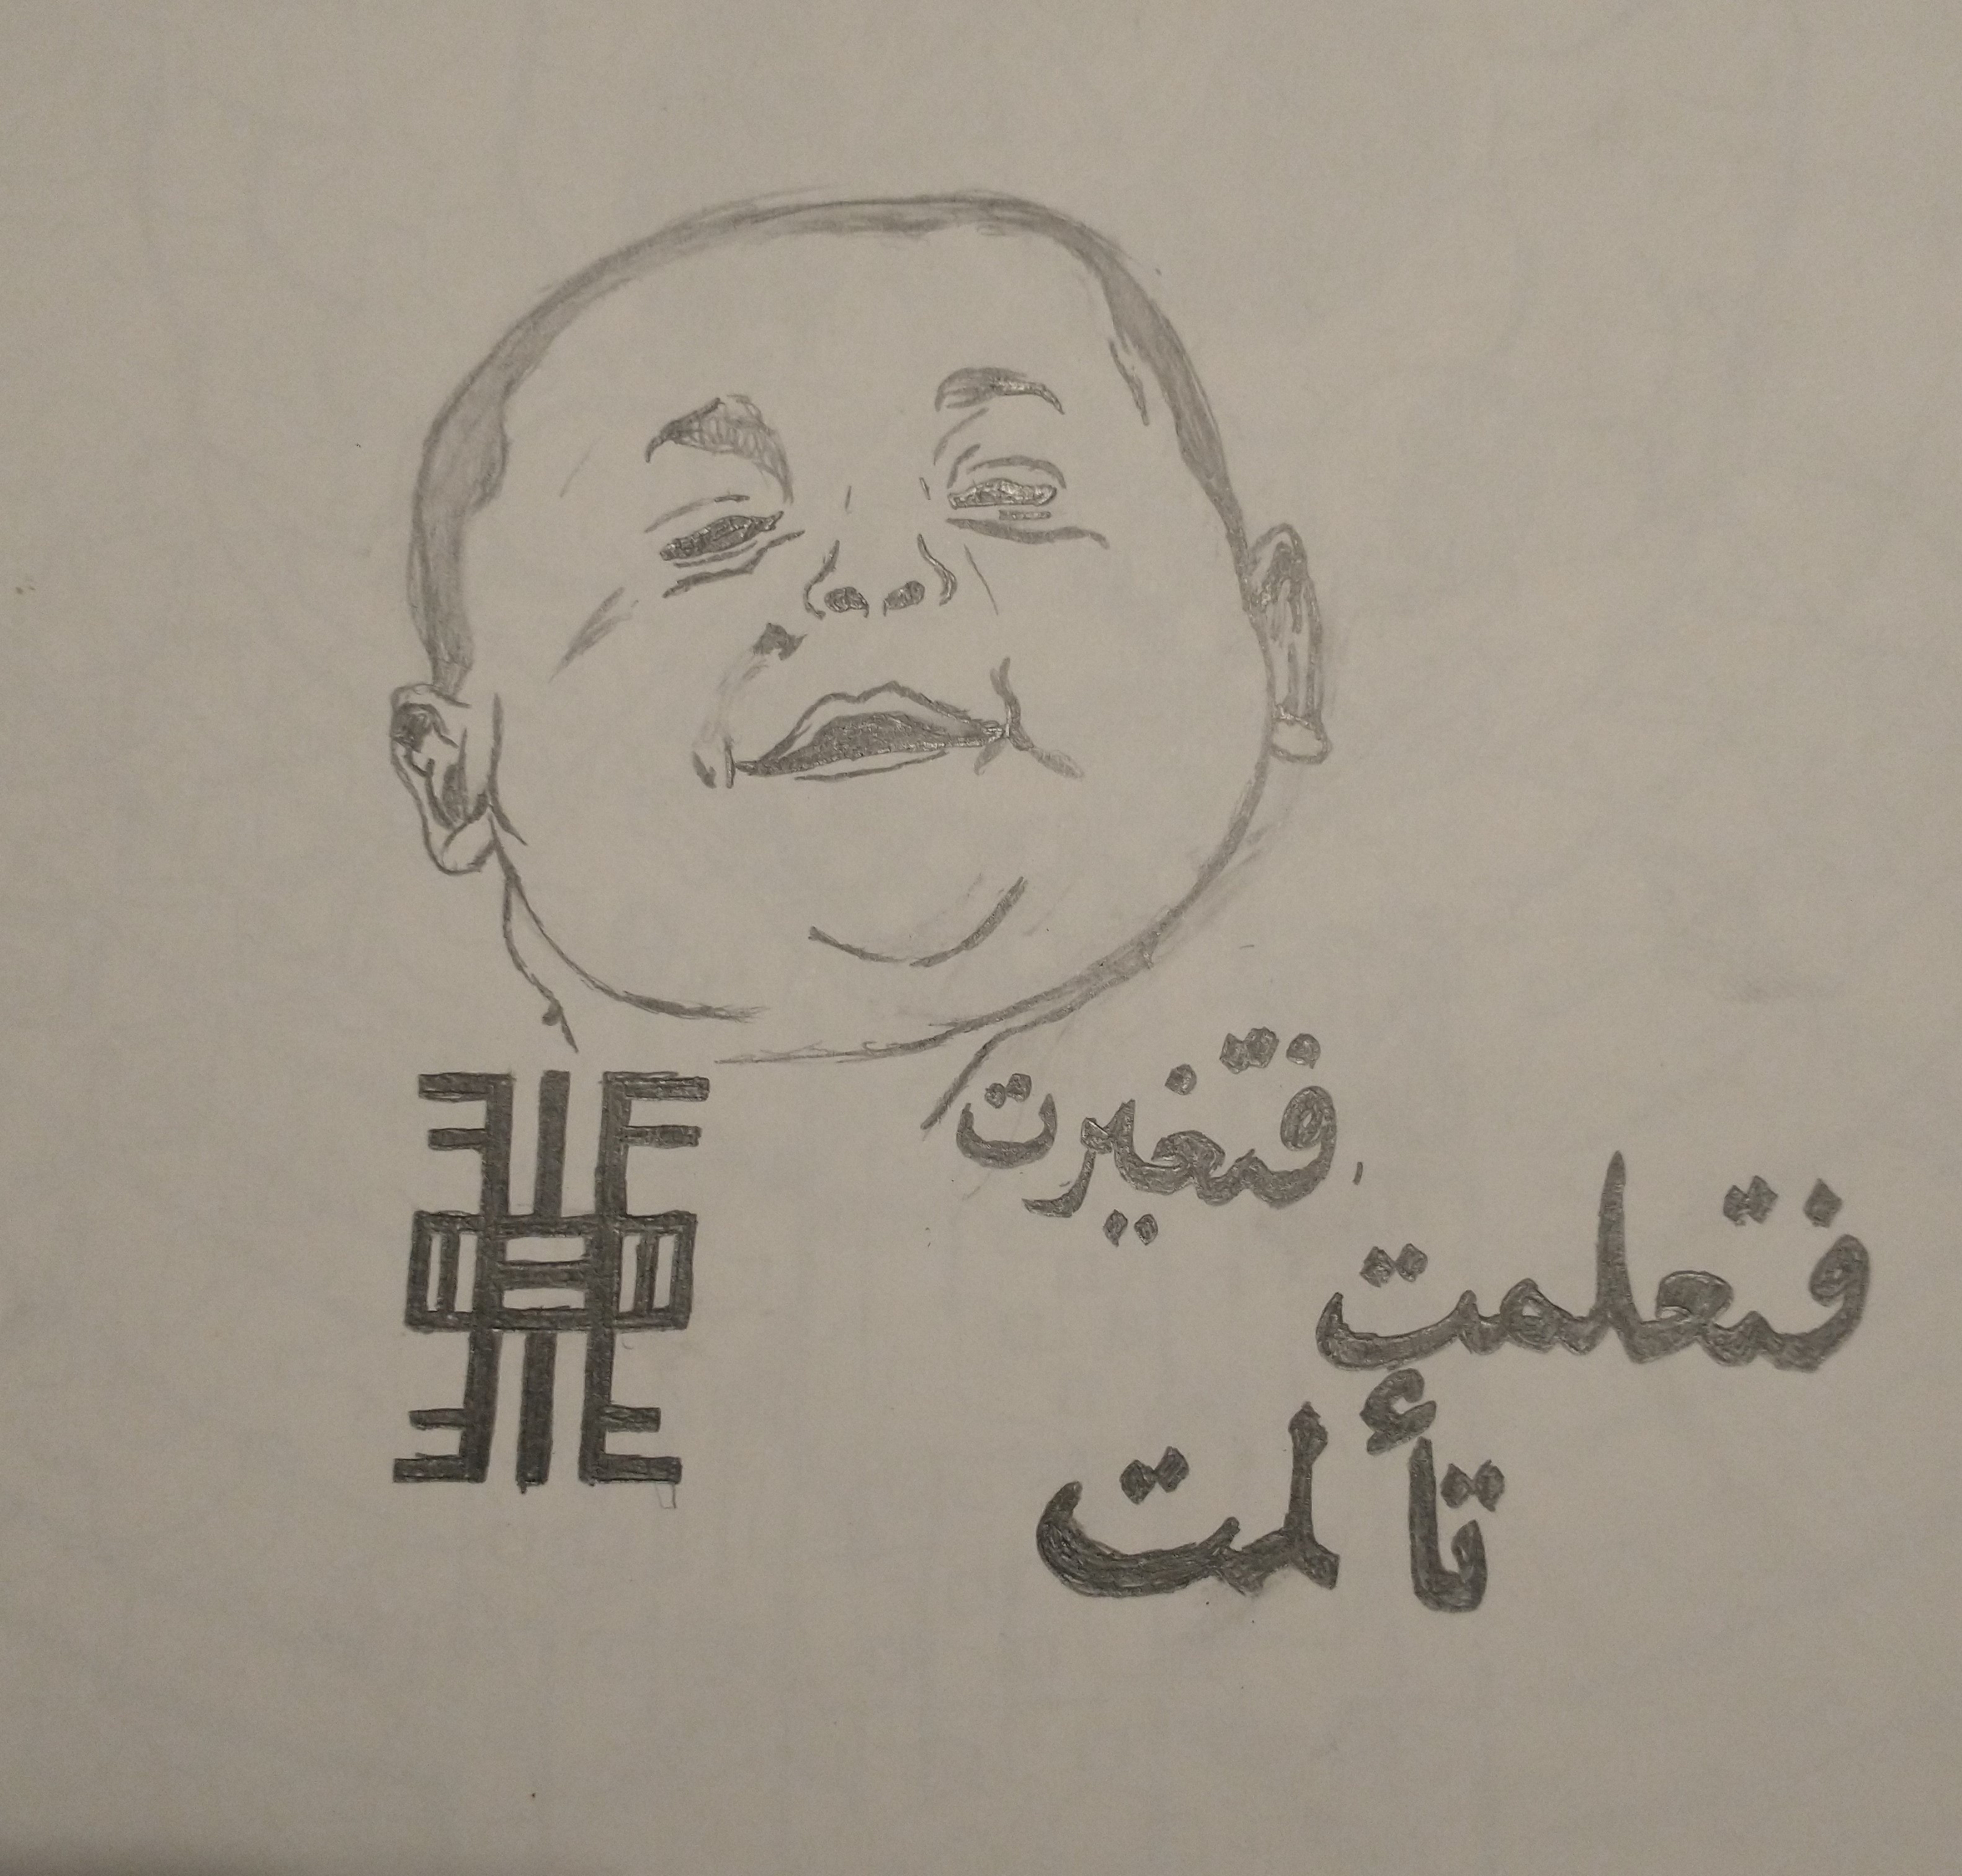 فتغيرت
فتعلمت
تألمت